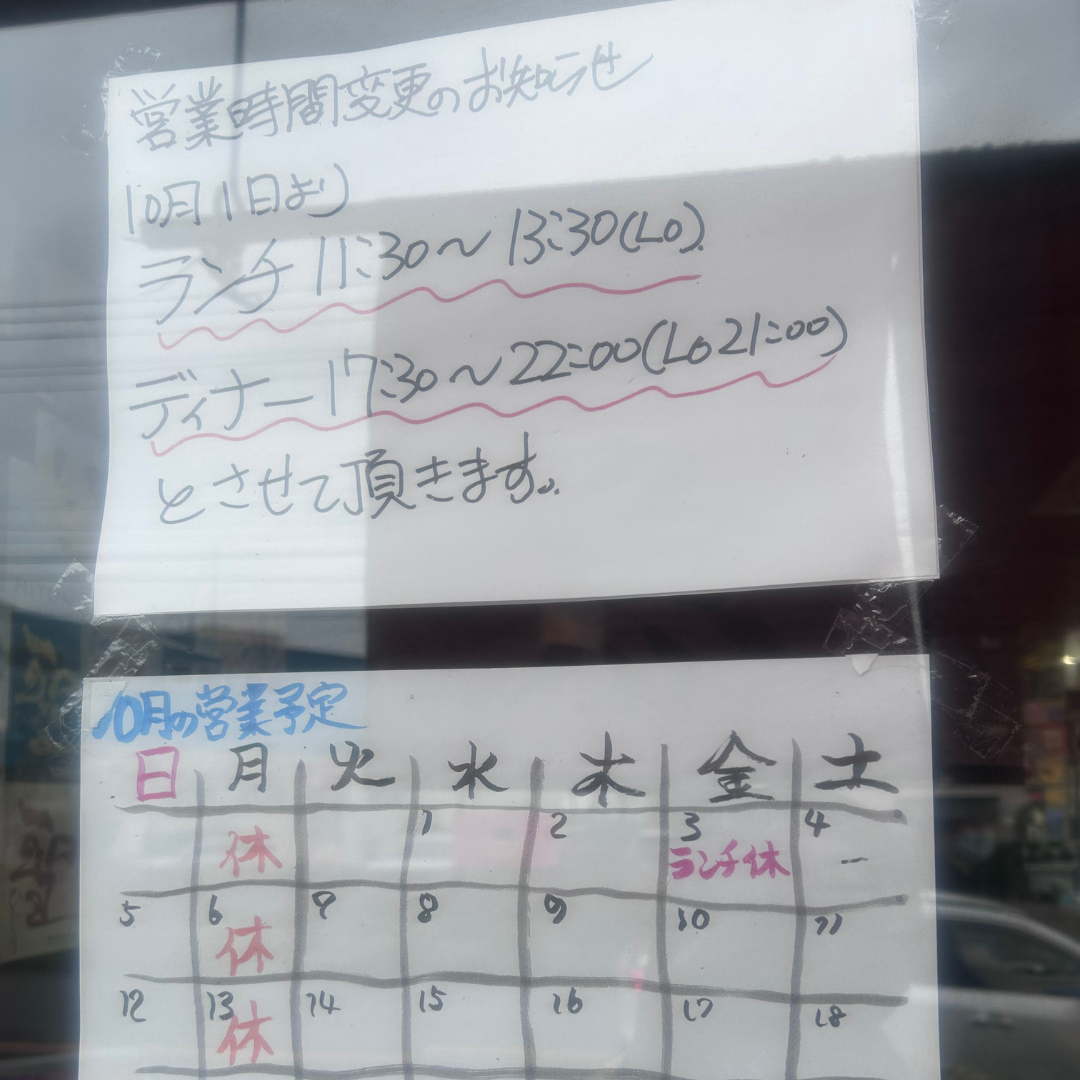 営業時間変更のお知らせ
10月1日より
ランチ 11:30〜13:30(LO).
ディナー 17:30〜22:00(LO21:00)
とさせて頂きます。
10月の営業予定
日 月 火 水 木 金 土
休 1 2 3 ランチ休 4
5 6 休 7 8 9 10 11
12 13 休 14 15 16 17 18